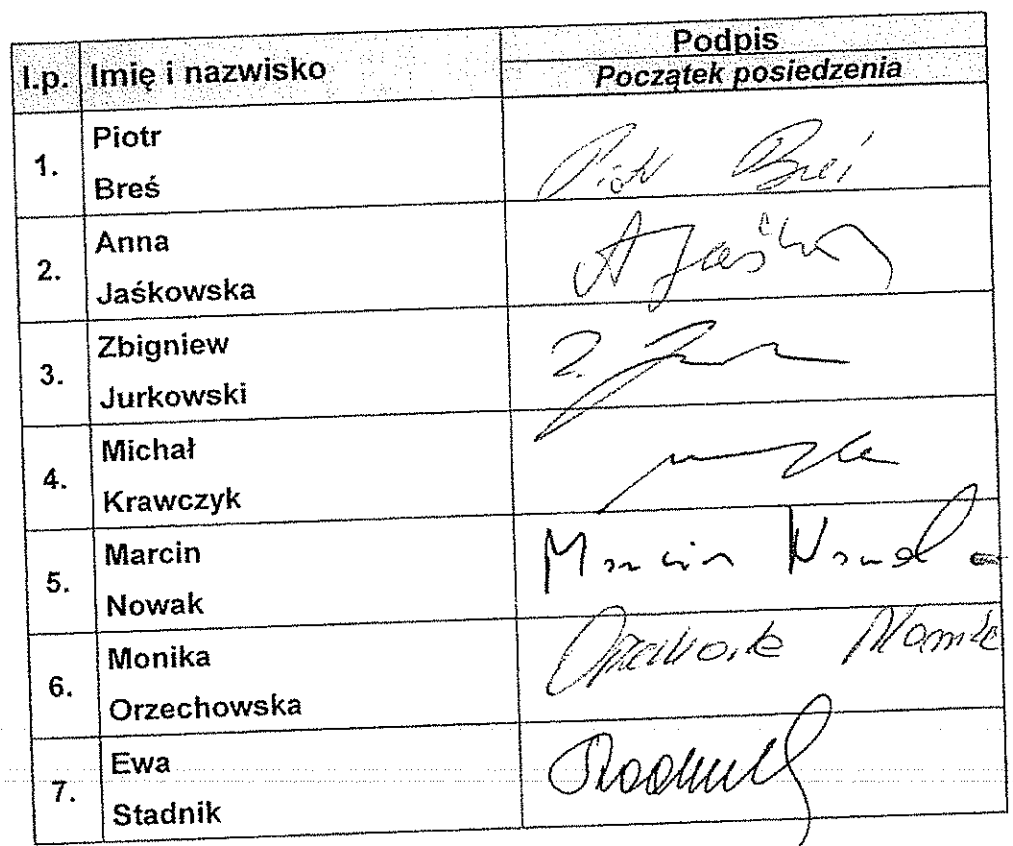 Podpis
l.p. Imię i nazwisko
Początek posiedzenia
1. Piotr
Breś
Piotr Breś
2. Anna
Jaśkowska
A Jaśk
3. Zbigniew
Jurkowski
Z.
4. Michał
Krawczyk
5. Marcin
Nowak
Marcin Nowak
6. Monika
Orzechowska
Orzechowska Monika
7. Ewa
Stadnik